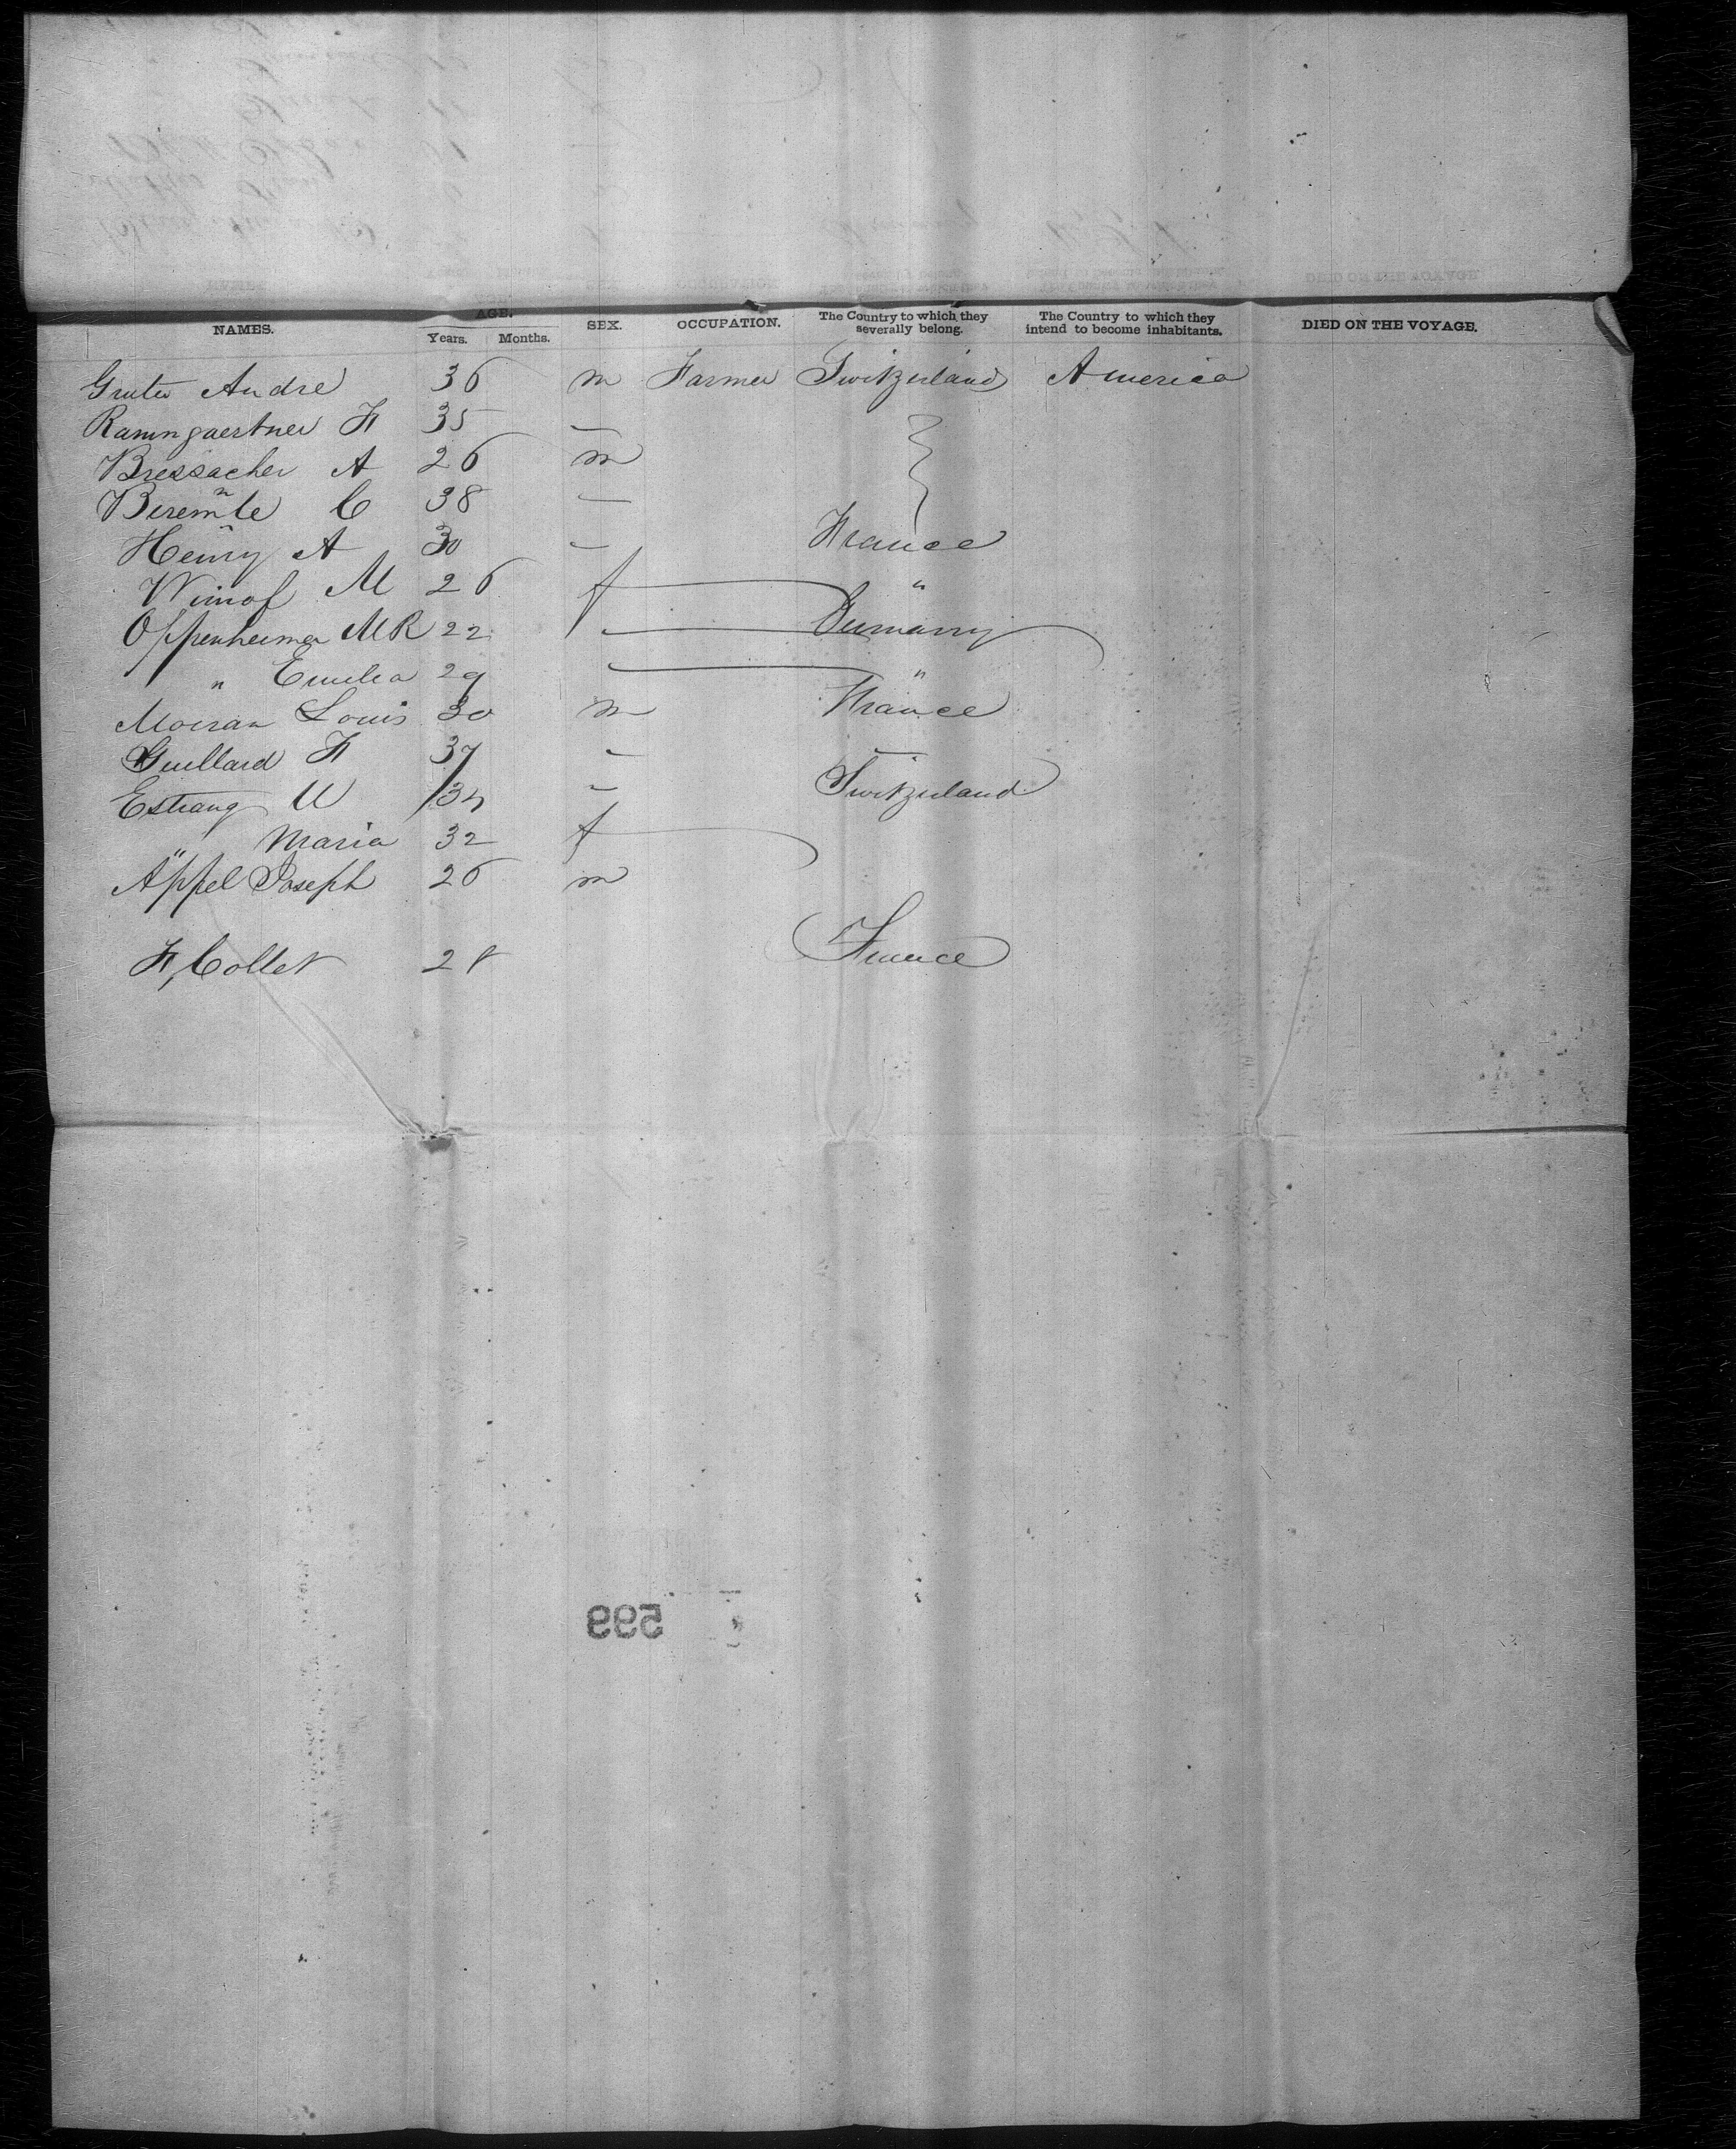 NAMES. AGE. Years. Months. SEX. OCCUPATION. The Country to which they severally belong. The Country to which they intend to become inhabitants. DIED ON THE VOYAGE.
Andre 36 m Farmer Switzerland America
F 35 —
Bressacher A 26 m
C 38 —
Henry A 30 — France
M 26 f "
Oppenheimer MR 22 — Germany
" Emilia 29 — "
Louis 30 m France
Guillard F 37 — —
Estrang U 34 — Switzerland
" Maria 32 f
Appel Joseph 26 m
F, Collet 28 France
599